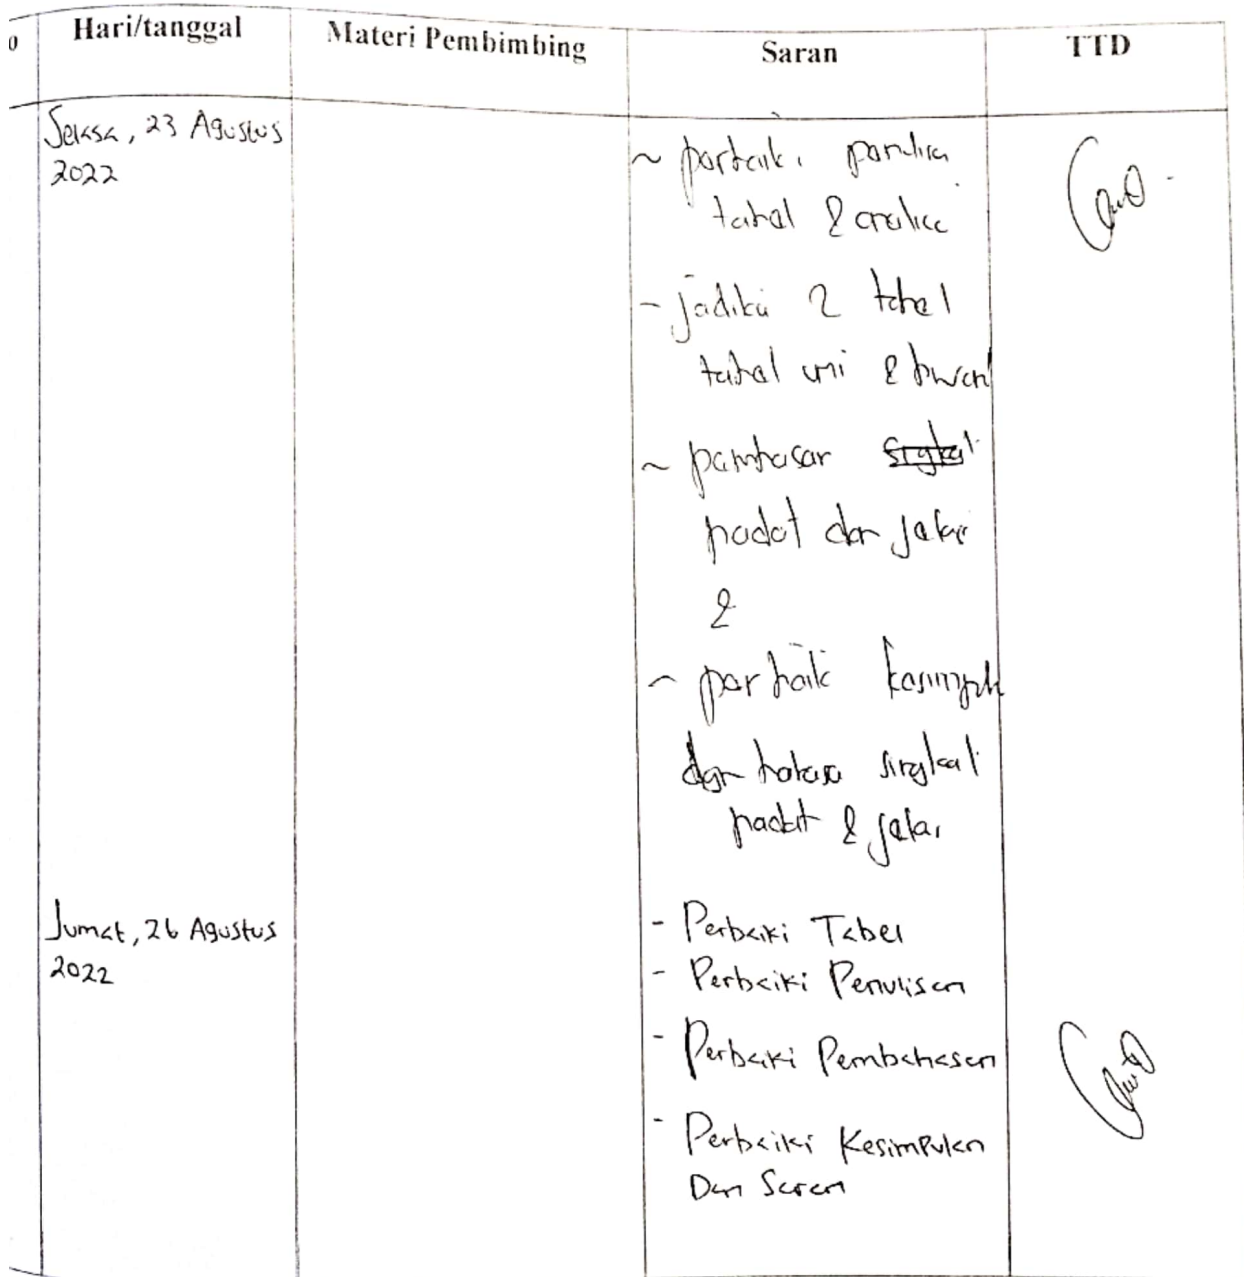 Hari/tanggal Materi Pembimbing Saran TTD
Selasa, 23 Agustus
2022
~ perbaiki
tabel &
- jadika 2 tabel
tabel uni &
~ singkat
padat dan jelas
&
~ perbaiki
dgn bahasa singkat
padat & jelas
Jumat, 26 Agustus
2022
- Perbaiki Tabel
- Perbaiki Penulisan
- Perbaiki Pembahasan
- Perbaiki Kesimpulan
Dan Saran